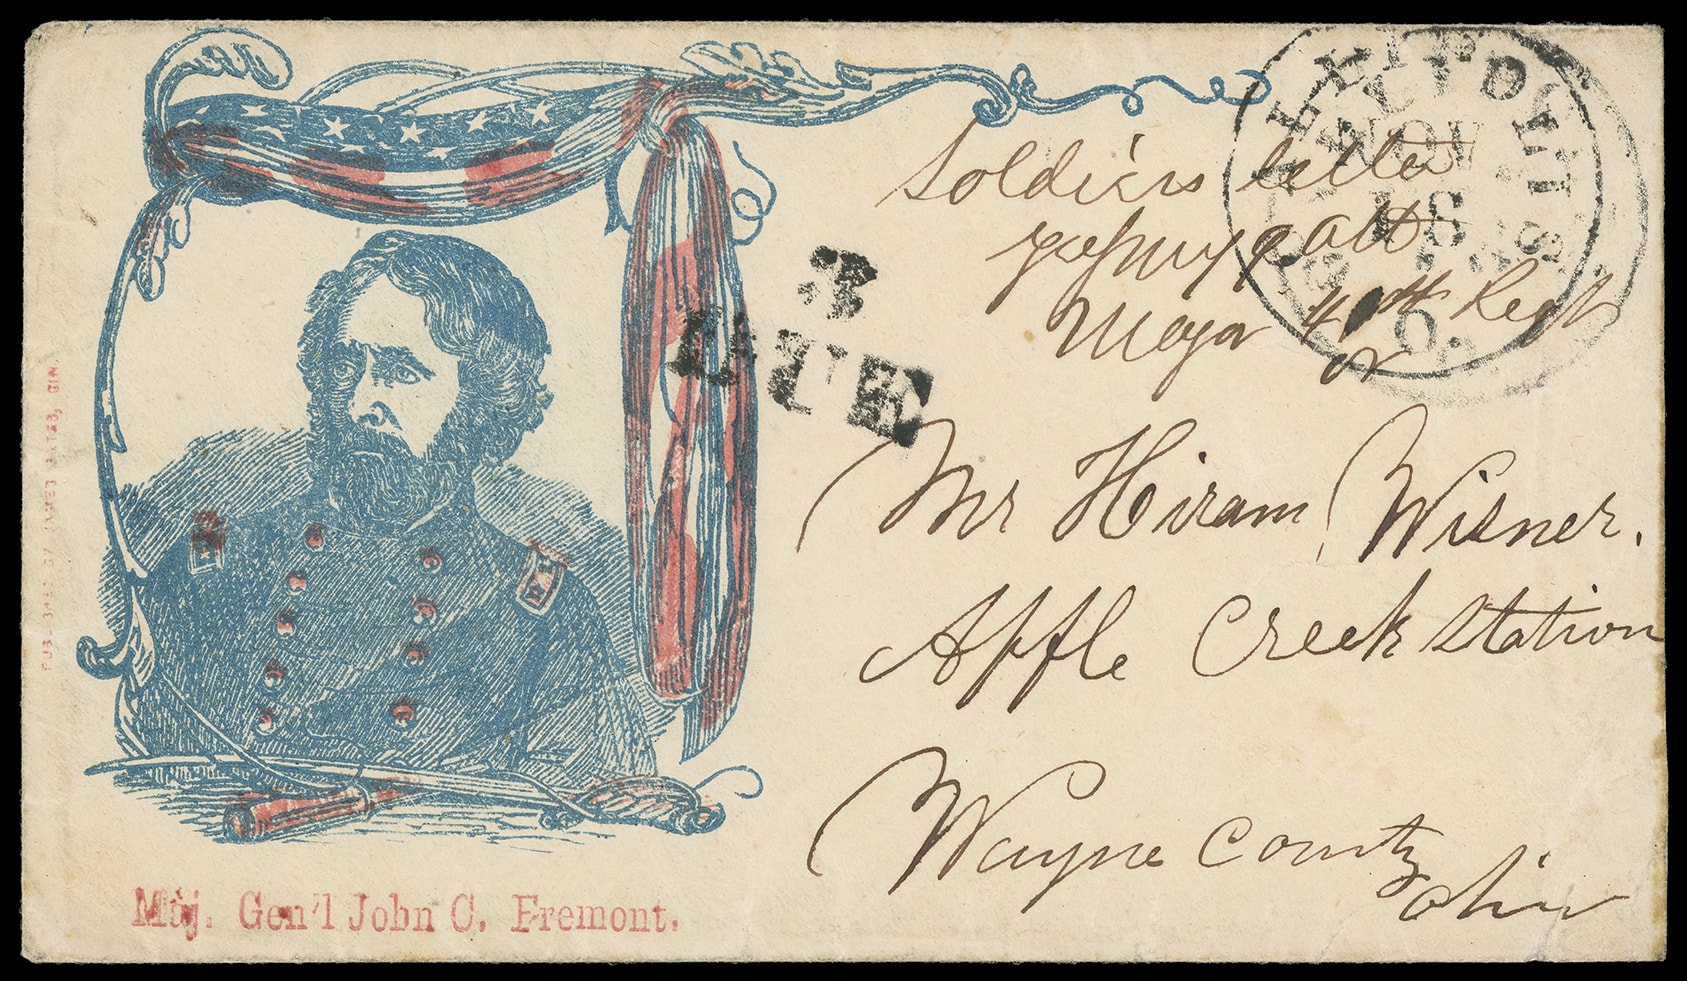 Soldiers letter
Major 40th Regt
3
DUE
NOV
18
O.
Mr Hiram Wisner.
Apple Creek Station
Wayne County
Ohio
PUBLISHED BY JAMES GATES, CIN.
Maj. Gen'l John C. Fremont.